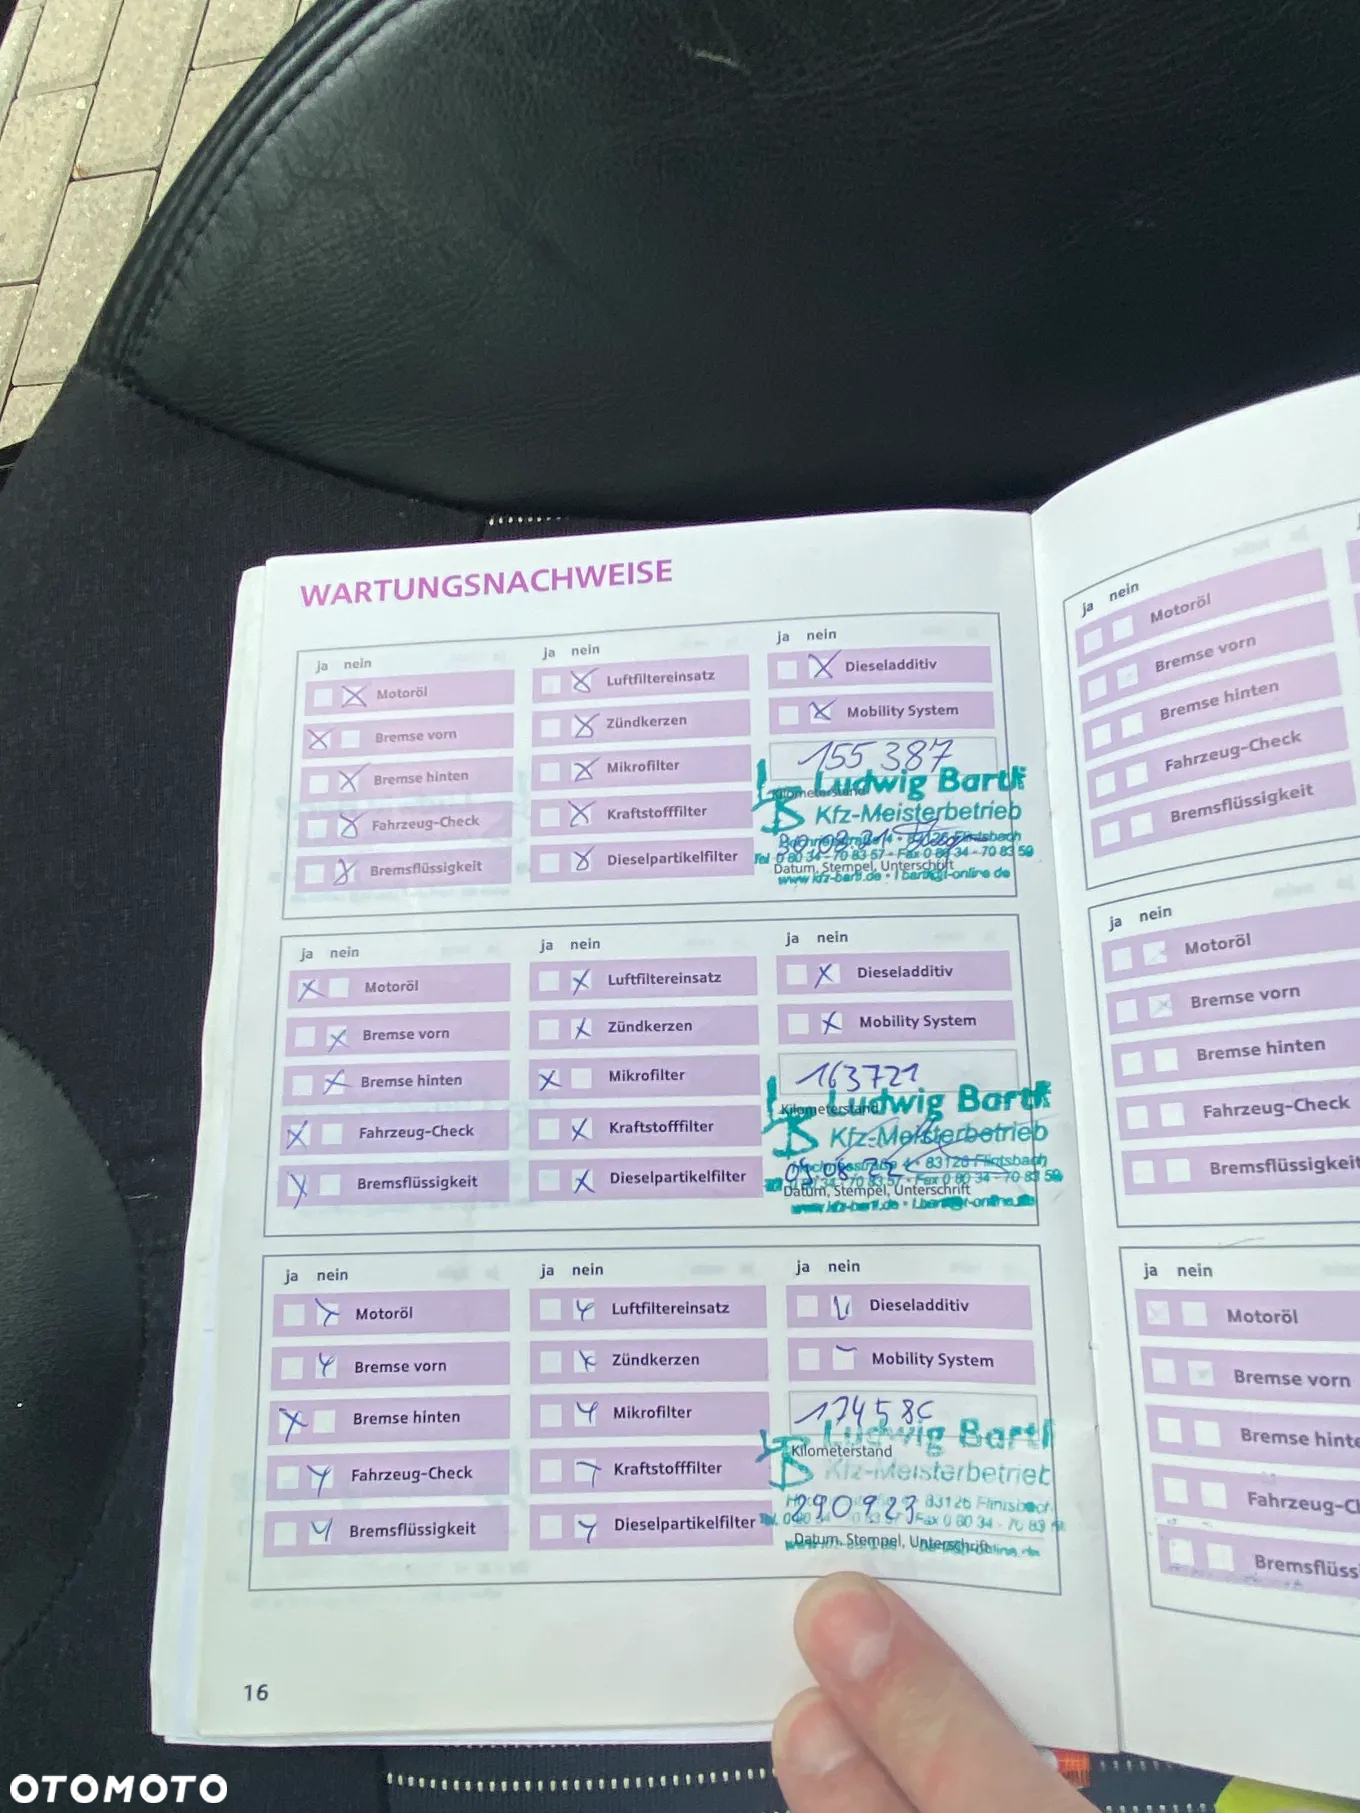 WARTUNGSNACHWEISE
ja nein
Motoröl
Bremse vorn
Bremse hinten
Fahrzeug-Check
Bremsflüssigkeit
ja nein
Luftfiltereinsatz
Zündkerzen
Mikrofilter
Kraftstofffilter
Dieselpartikelfilter
ja nein
Dieseladditiv
Mobility System
155 387
Kilometerstand
Ludwig Bartl
Kfz-Meisterbetrieb
83126 Flintsbach
Tel 0 80 34 - 70 83 57 • Fax 0 80 34 - 70 83 59
Datum, Stempel, Unterschrift
www.kfz-bartl.de • l.bartl@t-online.de
ja nein
Motoröl
Bremse vorn
Bremse hinten
Fahrzeug-Check
Bremsflüssigkeit
ja nein
Luftfiltereinsatz
Zündkerzen
Mikrofilter
Kraftstofffilter
Dieselpartikelfilter
ja nein
Dieseladditiv
Mobility System
163721
Kilometerstand
Ludwig Bartl
Kfz-Meisterbetrieb
83126 Flintsbach
70 83 57 • Fax 0 80 34 - 70 83 59
Datum, Stempel, Unterschrift
www.kfz-bartl.de • l.bartl@t-online.de
ja nein
Motoröl
Bremse vorn
Bremse hinten
Fahrzeug-Check
Bremsflüssigkeit
ja nein
Luftfiltereinsatz
Zündkerzen
Mikrofilter
Kraftstofffilter
Dieselpartikelfilter
ja nein
Dieseladditiv
Mobility System
Ludwig Bartl
Kilometerstand
Kfz-Meisterbetrieb
290923 83126 Flintsbach
Fax 0 80 34 - 70 83
Datum, Stempel, Unterschrift
16
ja nein
Motoröl
Bremse vorn
Bremse hinten
Fahrzeug-Check
Bremsflüssigkeit
ja nein
Motoröl
Bremse vorn
Bremse hinten
Fahrzeug-Check
Bremsflüssigkeit
ja nein
Motoröl
Bremse vorn
Bremse hinte
Fahrzeug-Cl
Bremsflüss
OTOMOTO